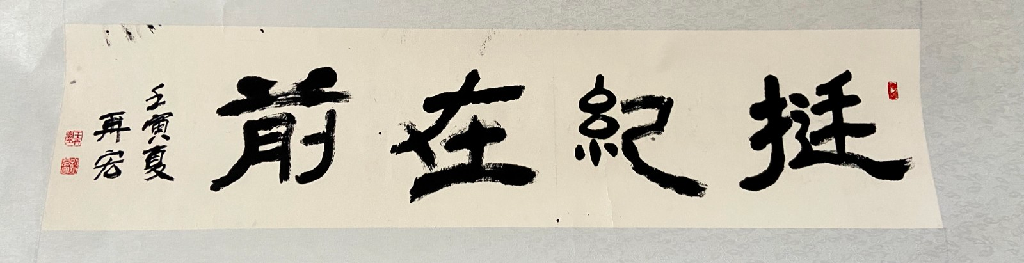 挺紀在前
壬寅夏
再宏